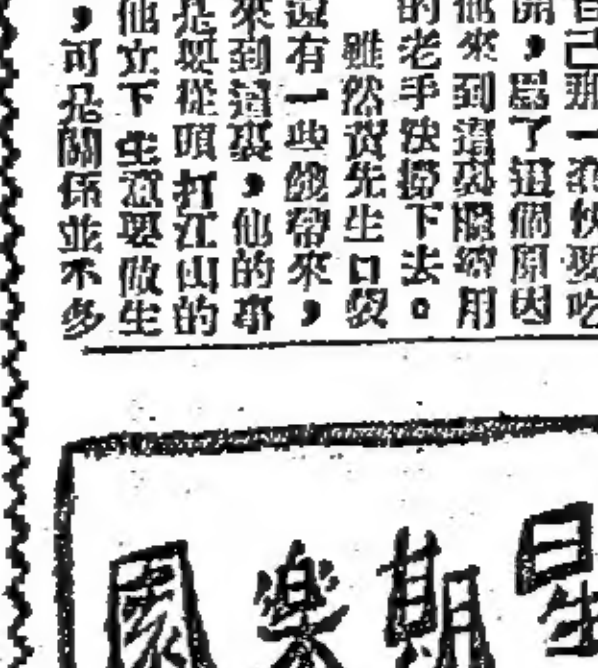 己那一
開，爲了這個原因
他來到這裏關綽用
的老手快撈下去。
雖然黃先生口袋
還有一些錢帶來，
來到這裏，他的事
是要從頭打江山的
他立下生意要做生
，可是關係並不多
星期樂園